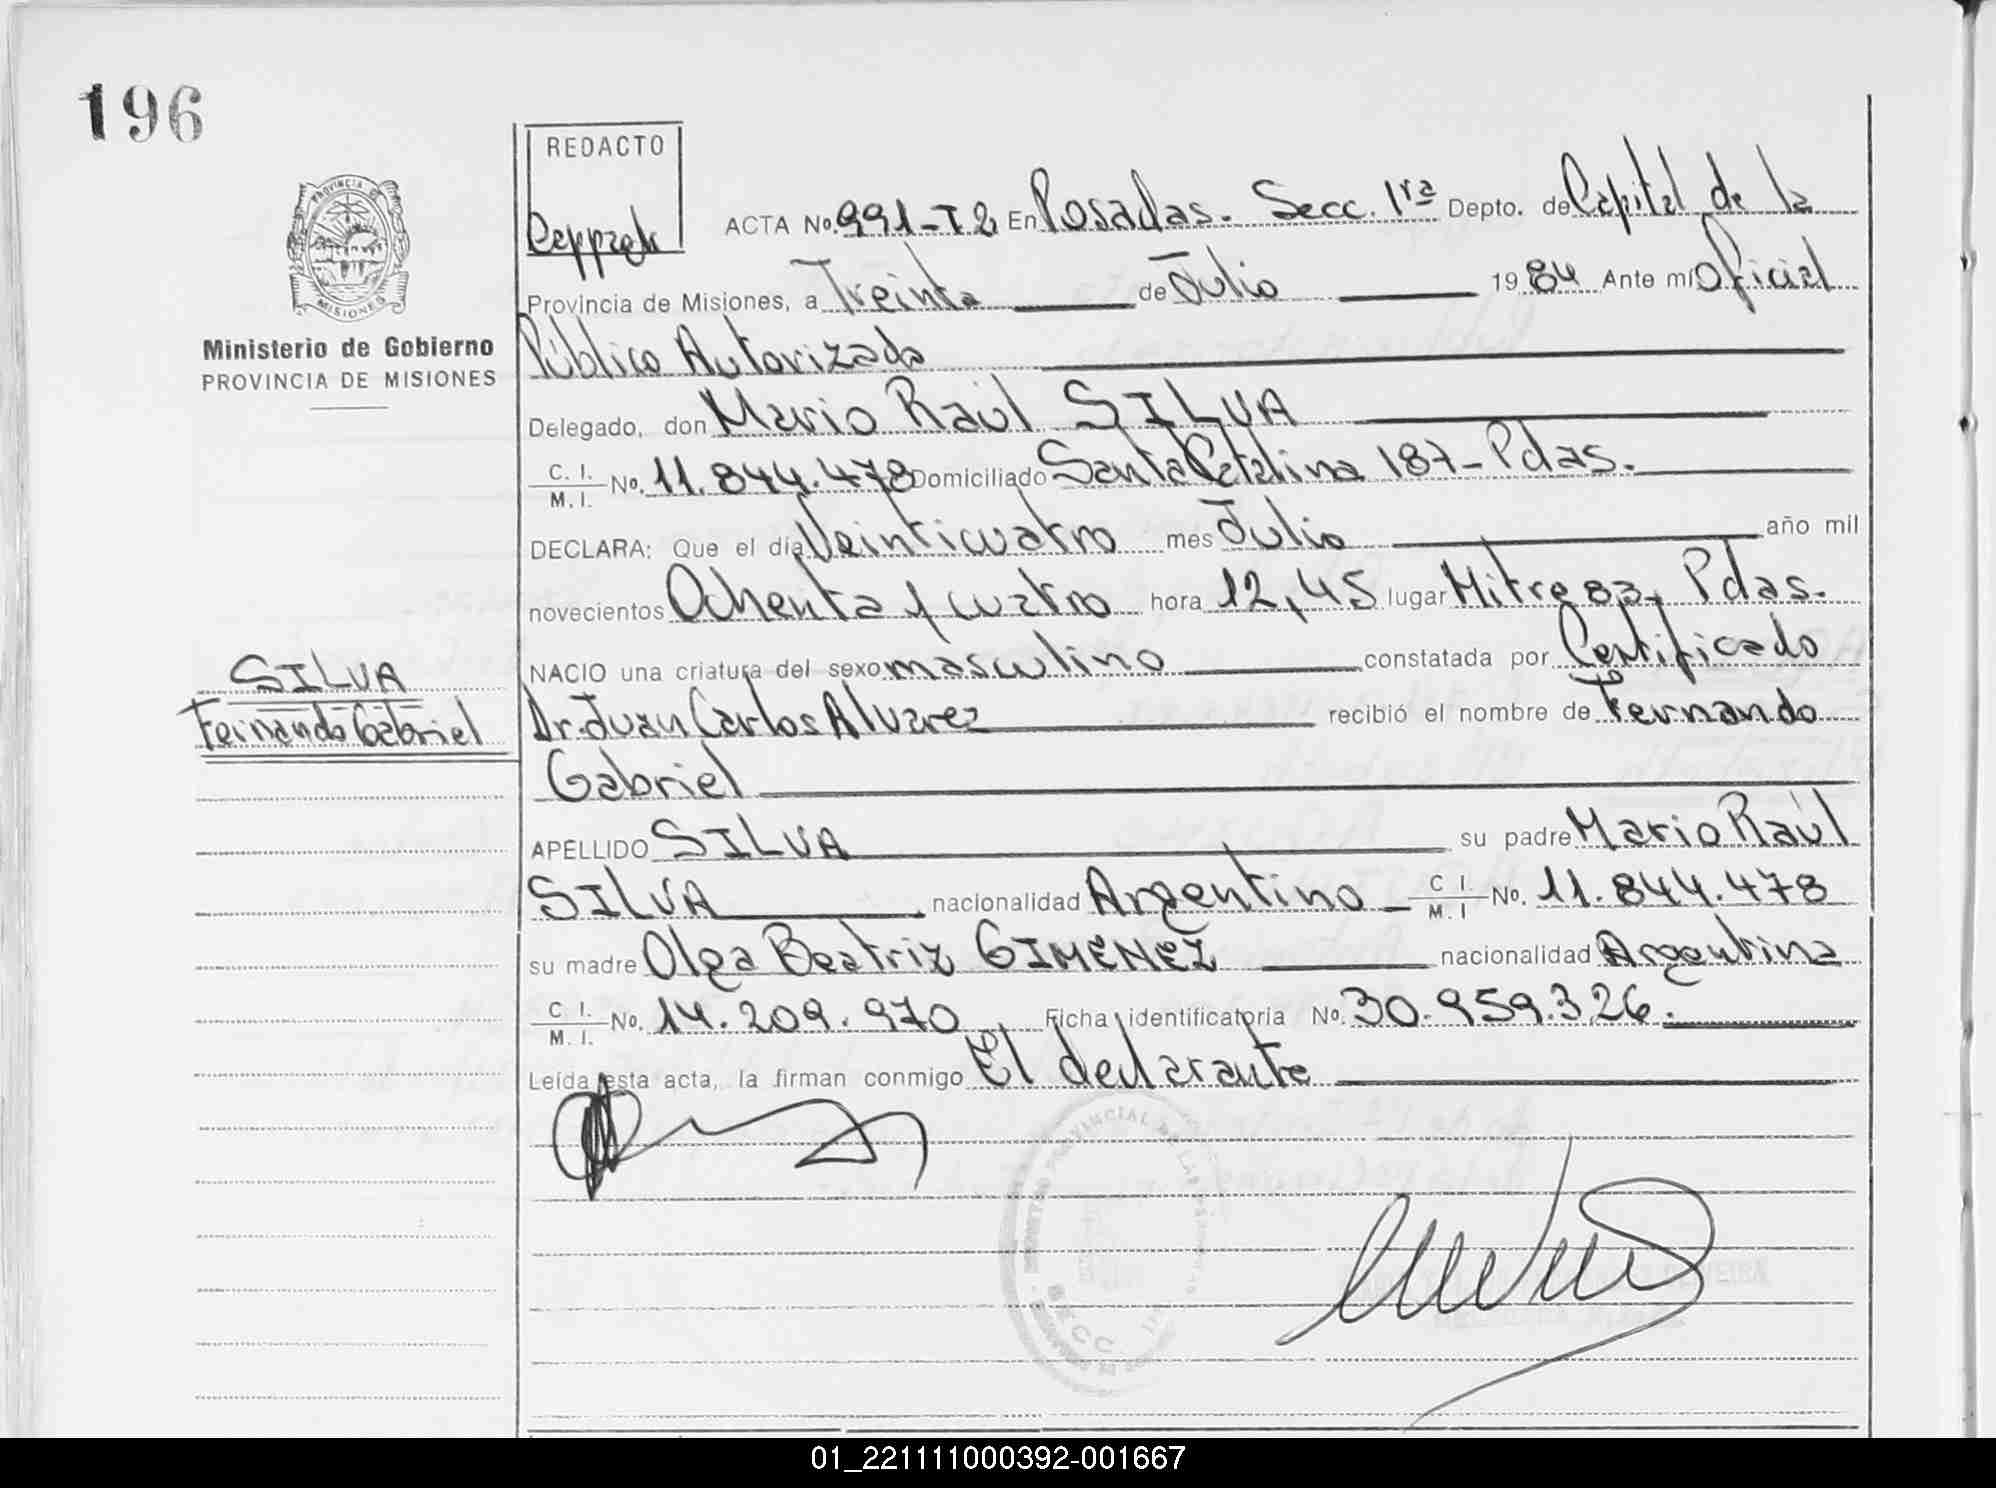 196
REDACTO
PROVINCIA DE
MISIONES
Ministerio de Gobierno
PROVINCIA DE MISIONES
ACTA No. 991-T2 En Posadas. Secc. 1ra Depto. de Capital de la
Provincia de Misiones, a Treinta de Julio 1984 Ante mí Oficial
Público Autorizado
Delegado, don Mario Raúl SILVA
C. I.
M. I. No. 11.844.478 Domiciliado Santa Catalina 187- Pdas.
DECLARA: Que el día Veinticuatro mes Julio año mil
novecientos Ochenta y cuatro hora 12,45 lugar Mitre 83, Pdas.
NACIO una criatura del sexo masculino constatada por Certificado
Dr. Juan Carlos Alvarez recibió el nombre de Fernando
Gabriel
SILVA
Fernando Gabriel
APELLIDO SILVA su padre Mario Raúl
SILVA nacionalidad Argentino C I. M. I No. 11.844.478
su madre Olga Beatriz GIMENEZ nacionalidad Argentina
C I.
M. I. No. 14.209.970 Ficha identificatoria No. 30.959.326.
Leída esta acta, la firman conmigo El declarante
01_221111000392-001667